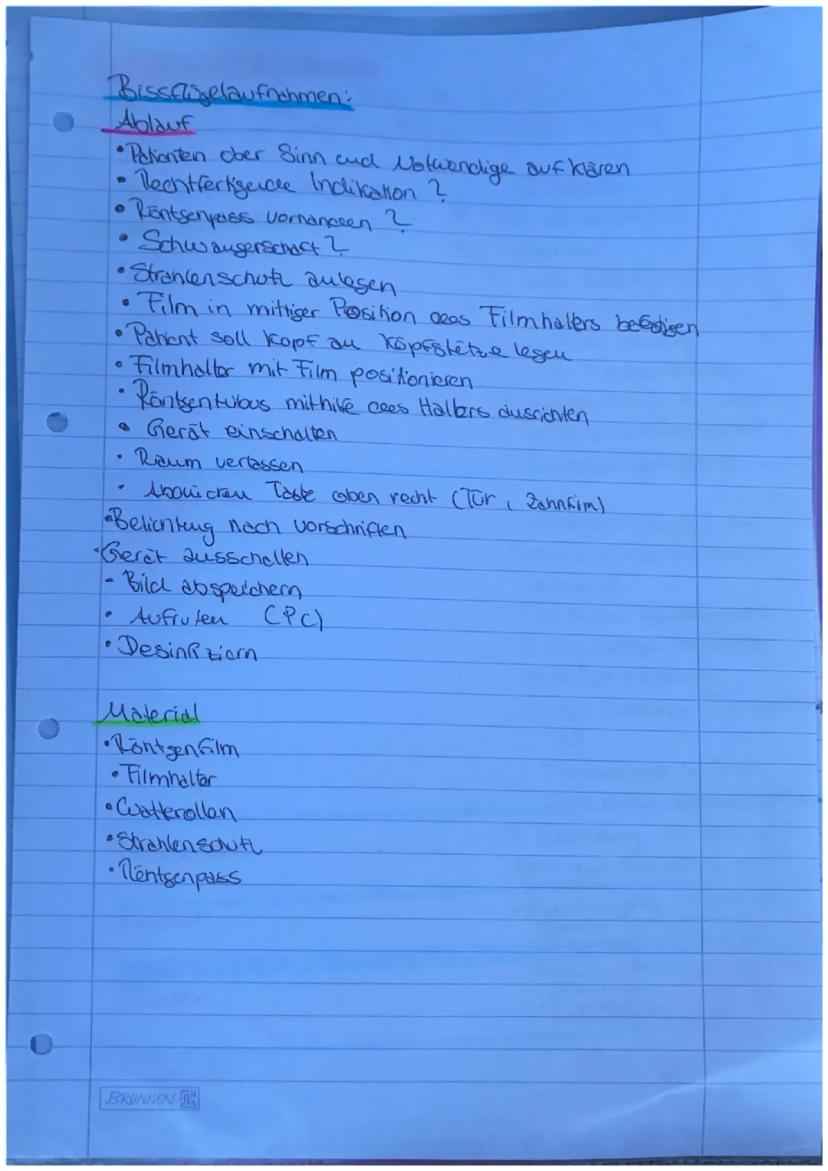 Bissflügelaufnahmen:
Ablauf
• Patienten über Sinn und Notwendige aufklären
• Rechtfertigende Indikation ?
• Röntgenpass vorhanden ?
• Schwangerschaft ?
• Strahlenschutz anlegen
• Film in mittiger Position des Filmhalters befestigen
• Patient soll Kopf an Kopfstütze legen
• Filmhalter mit Film positionieren
• Röntgentubus mithilfe des Halters ausrichten
• Gerät einschalten
• Raum verlassen
• Taste oben recht (Tür, Zahnfilm)
• Belichtung nach vorschriften
• Gerät ausschalten
- Bild abspeichern
• Aufrufen (PC)
• Desinfiziern
Material
• Röntgenfilm
• Filmhalter
• Watterollen
• Strahlenschutz
• Röntgenpass
BRUNNEN